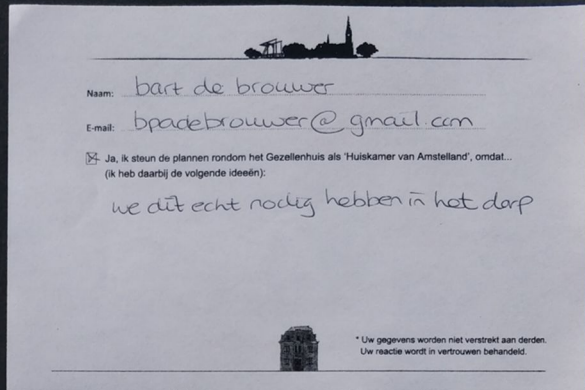 Naam: bart de brouwer
E-mail: bpadebrouwer@gmail.com
Ja, ik steun de plannen rondom het Gezellenhuis als 'Huiskamer van Amstelland', omdat...
(ik heb daarbij de volgende ideeën):
we dit echt nodig hebben in het dorp
* Uw gegevens worden niet verstrekt aan derden.
Uw reactie wordt in vertrouwen behandeld.